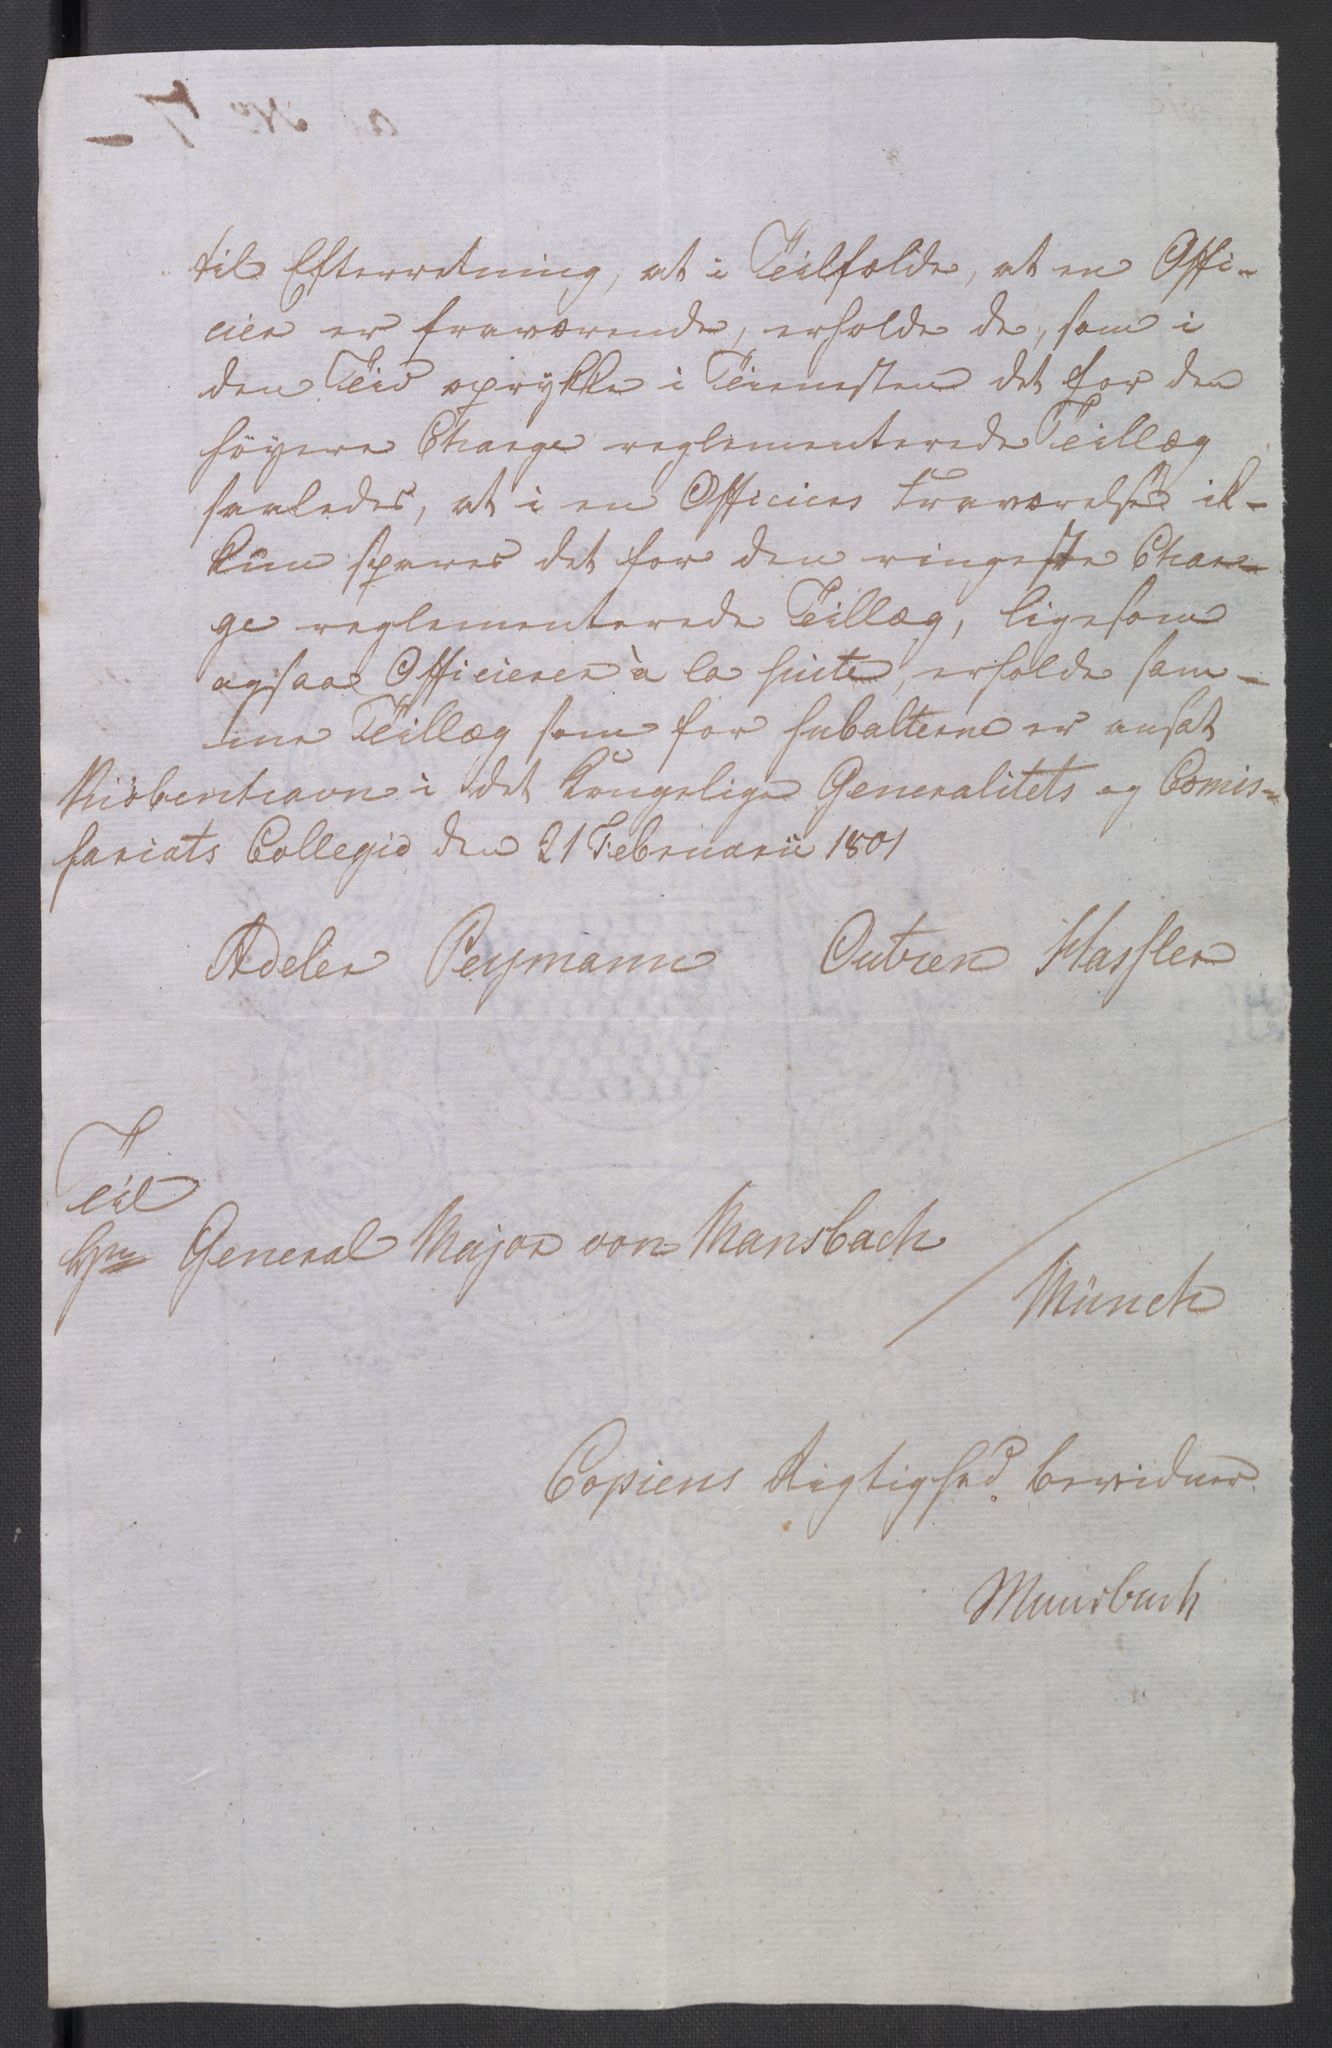 til Efterretning, at i Tilfælde, at en Offi-
cier er fraværende, erholde de, som i
den Tid oprykke i Tienesten det for den
høyere Charge reglementerede Tillæg
saaledes, at i en Officiers Fraværelse ik-
kun spares det for den ringeste Char-
ge reglementerede Tillæg, ligesom
ogsaa Officierer à la suite, erholde sam-
me Tillæg som for subalterne er ansat
Kiøbenhavn i det Kongelige Generalitets og Comis-
sariats Collegio den 21 Februarii 1801
Adeler Peymann Hassler
Til
Hrn General Major von Mansbach
Münch
Copiens Rigtighed bevidner
Mansbach